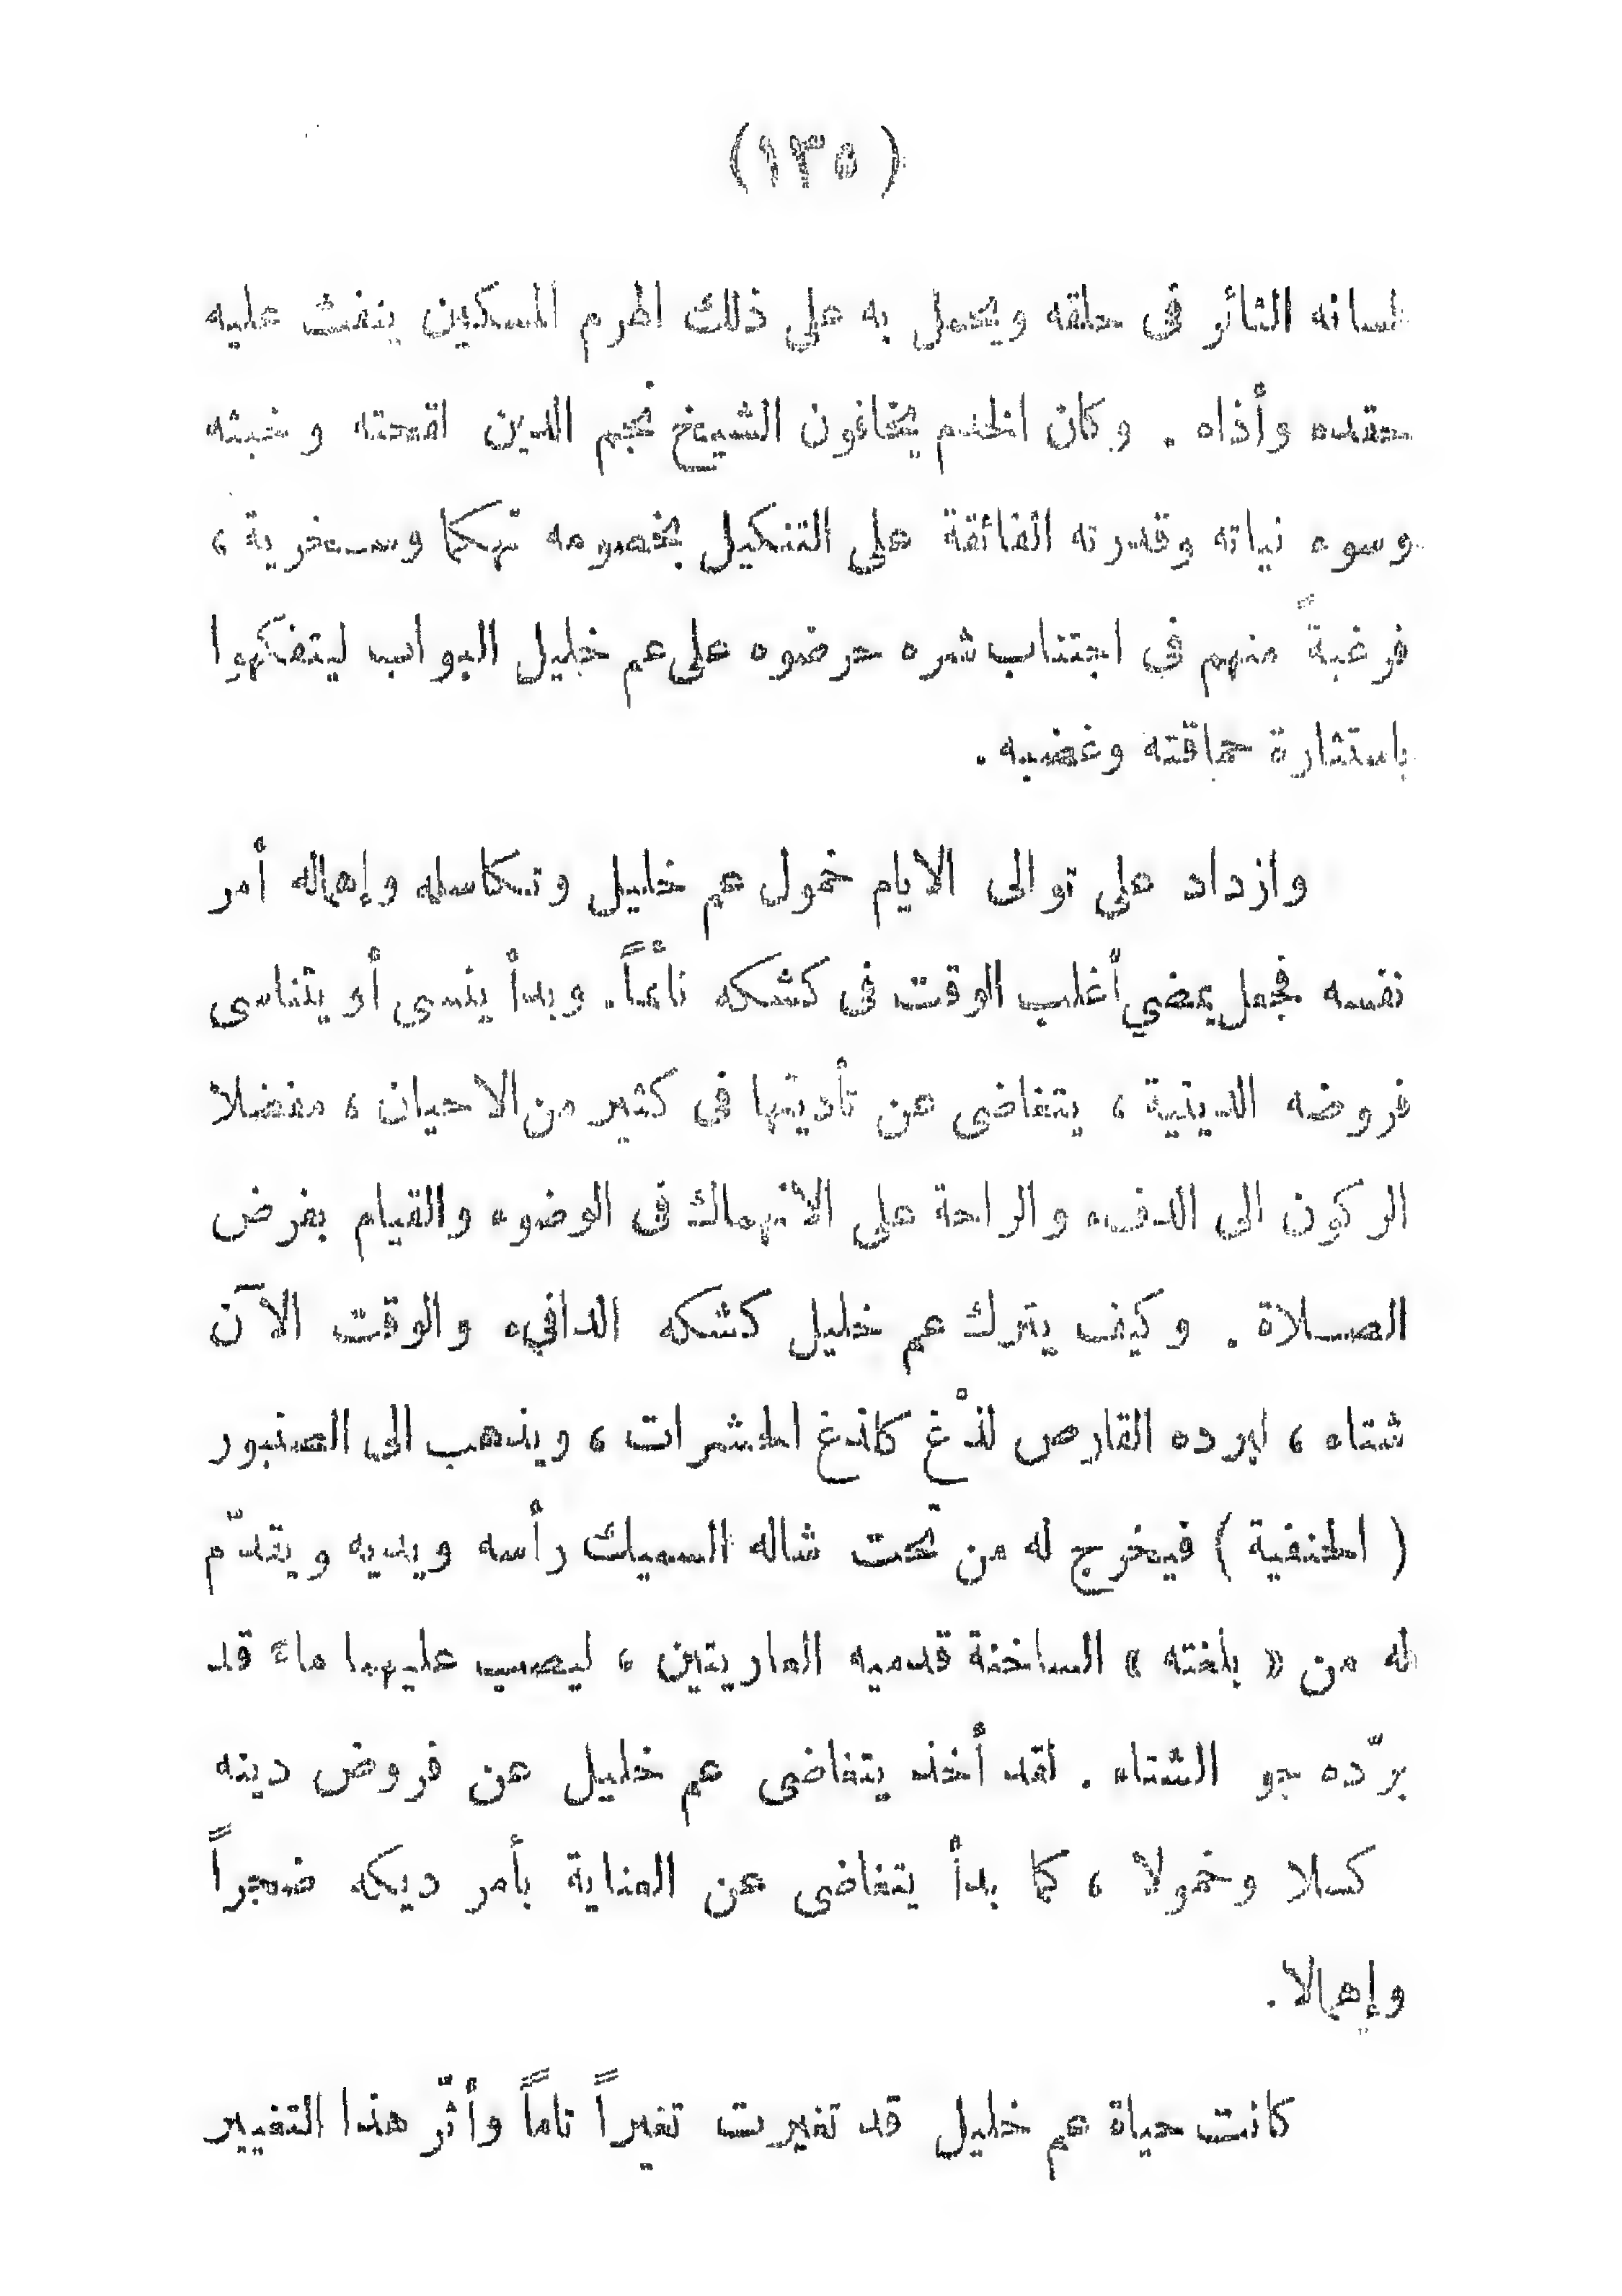 (١٣٥)
لسانه الثائر فى حلقه ويحمل به على ذلك الهرم المسكين ينفث عليه
حقده وأذاه . وكان الخدم يخافون الشيخ نجم الدين لقحته وخبثه
وسوء نياته وقدرته الفائقة على التنكيل بخصومه تهكما وسخرية ،
فرغبةً منهم فى اجتناب شره حرضوه على عم خليل البواب ليتفكهوا
باستثارة حماقته وغضبه .
وازداد على توالى الايام خمول عم خليل وتكاسله وإهماله أمر
نفسه فجعل يمضي أغلب الوقت فى كشكه نائماً . وبدأ ينسى أو يتناسى
فروضه الدينية ، يتغاضى عن تأديتها فى كثير من الاحيان ، مفضلا
الركون الى الدفء والراحة على الانهماك فى الوضوء والقيام بفرض
الصلاة . وكيف يترك عم خليل كشكه الدافيء والوقت الآن
شتاء ، لبرده القارص لذْغ كلذغ الحشرات ، ويذهب الى الصنبور
( الحنفية ) فيخرج له من تحت شاله السميك رأسه ويديه ويقدّم
له من « بلغته » الساخنة قدميه العاريتين ، ليصب عليهما ماء قد
برّده جو الشتاء . لقد أخذ يتغاضى عم خليل عن فروض دينه
كسلا وخمولا ، كما بدأ يتغاضى عن العناية بأمر ديكه ضجراً
وإهمالا .
كانت حياة عم خليل قد تغيرت تغيراً تاماً وأثّر هذا التغيير